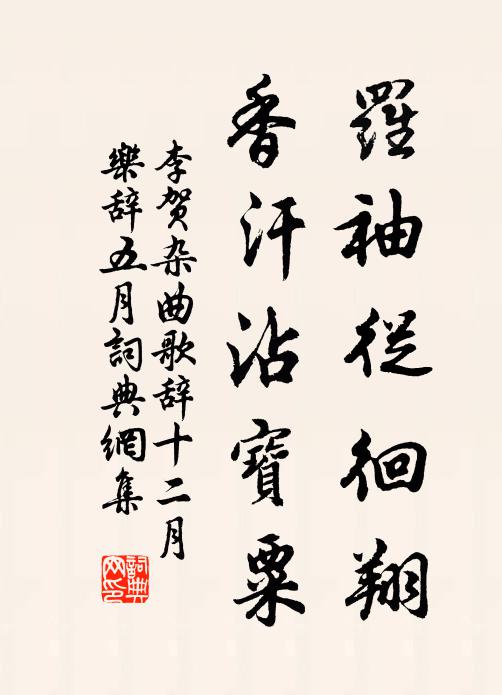 羅袖從徊翔
香汗沾寶粟
李賀杂曲歌辞十二月
樂辞五月詞典網集
詞典
网印